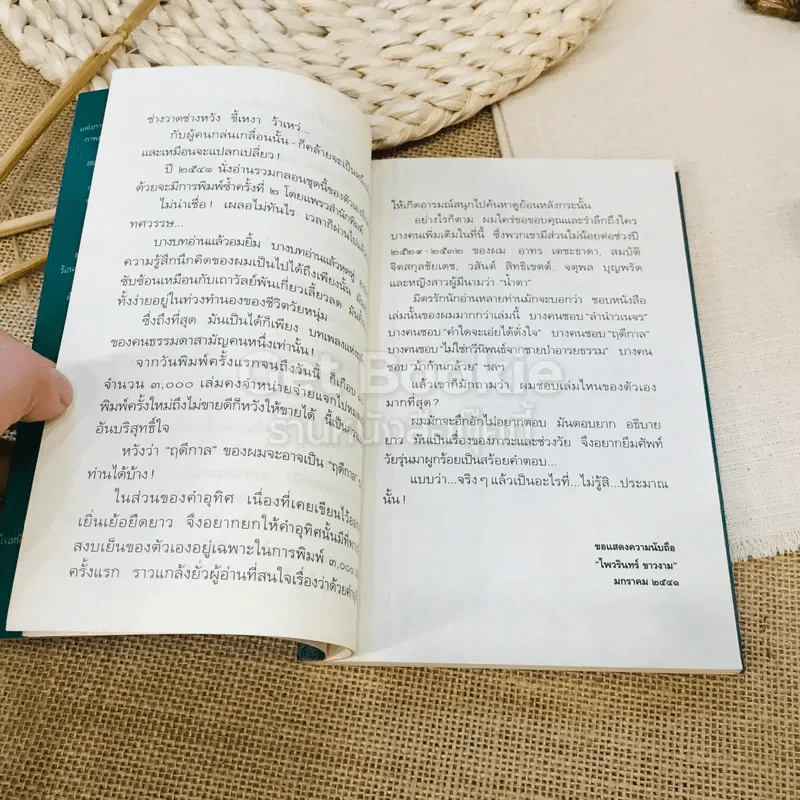 ช่างวาดช่างหวัง ขี้เหงา ว้าเหว่...
กับผู้คนกล่นเกลื่อนนั้น - ก็คล้ายจะเป็น
และเหมือนจะแปลกเปลี่ยว !
ปี ๒๕๔๑ นั่งอ่านรวมกลอนชุดนี้ของตัวเอง
ด้วยจะมีการพิมพ์ซ้ำครั้งที่ ๒ โดยแพรวสำนักพิมพ์
ไม่น่าเชื่อ ! เผลอไม่ทันไร เวลาก็ผ่านไป
ทศวรรษ...
บางบทอ่านแล้วอมยิ้ม บางบทอ่านแล้วหดหู่
ความรู้สึกนึกคิดของผมเป็นไปได้ถึงเพียงนั้น
ซับซ้อนเหมือนกับเถาวัลย์พันเกี่ยวเลี้ยวลด
ทั้งง่ายอยู่ในท่วงทำนองของชีวิตวัยหนุ่ม
ซึ่งถึงที่สุด มันเป็นได้ก็เพียง บทเพลงแห่ง
ของคนธรรมดาสามัญคนหนึ่งเท่านั้น !
จากวันพิมพ์ครั้งแรกจนถึงวันนี้ ก็เกือบ
จำนวน ๓,๐๐๐ เล่มคงจำหน่ายจ่ายแจกไปหมด
พิมพ์ครั้งใหม่ถึงไม่ขายดีก็หวังให้ขายได้ นี่เป็น
อันบริสุทธิ์ใจ
หวังว่า “ฤดีกาล” ของผมจะอาจเป็น “ฤดีกาล”
ท่านได้บ้าง !
ในส่วนของคำอุทิศ เนื่องที่เคยเขียนไว้
เยิ่นเย้อยืดยาว จึงอยากยกให้คำอุทิศนั้นมี
สงบเย็นของตัวเองอยู่เฉพาะในการพิมพ์ ๓,๐๐๐
ครั้งแรก ราวแกล้งยั่วผู้อ่านที่สนใจเรื่องว่าด้วย
ให้เกิดอารมณ์สนุกไปค้นหาดูย้อนหลังกระนั้น
อย่างไรก็ตาม ผมใคร่ขอขอบคุณและรำลึกถึงใคร
บางคนเพิ่มเติมในที่นี้ ซึ่งพวกเขามีส่วนไม่น้อยต่อช่วงปี
๒๕๒๙ - ๒๕๓๒ ของผม : อาทร เตชะธาดา, สมบัติ
จิตสกุลชัยเดช, วสันต์ สิทธิเขตต์, จตุพล บุญพรัด
และหญิงสาวผู้มีนามว่า “น้ำตา”
มิตรรักนักอ่านหลายท่านมักจะบอกว่า ชอบหนังสือ
เล่มนั้นของผมมากกว่าเล่มนี้ บางคนชอบ “ลำนำวเนจร”
บางคนชอบ “คำใดจะเอ่ยได้ดั่งใจ” บางคนชอบ “ฤดีกาล”
บางคนชอบ“ไม่ใช่กวีนิพนธ์จากชายป่าอารยธรรม” บางคน
ชอบ “ม้าก้านกล้วย” ฯลฯ
แล้วเขาก็มักถามว่า ผมชอบเล่มไหนของตัวเอง
มากที่สุด ?
ผมมักจะอึกอักไม่อยากตอบ มันตอบยาก อธิบาย
ยาว มันเป็นเรื่องของภาวะและช่วงวัย จึงอยากยืมศัพท์
วัยรุ่นมาผูกร้อยเป็นสร้อยคำตอบ...
แบบว่า...จริง ๆ แล้วเป็นอะไรที่...ไม่รู้สิ...ประมาณ
นั้น !
ขอแสดงความนับถือ
“ไพวรินทร์ ขาวงาม”
มกราคม ๒๕๔๑
Get Bookie
ร้านหนังสือกุ๊กกี้